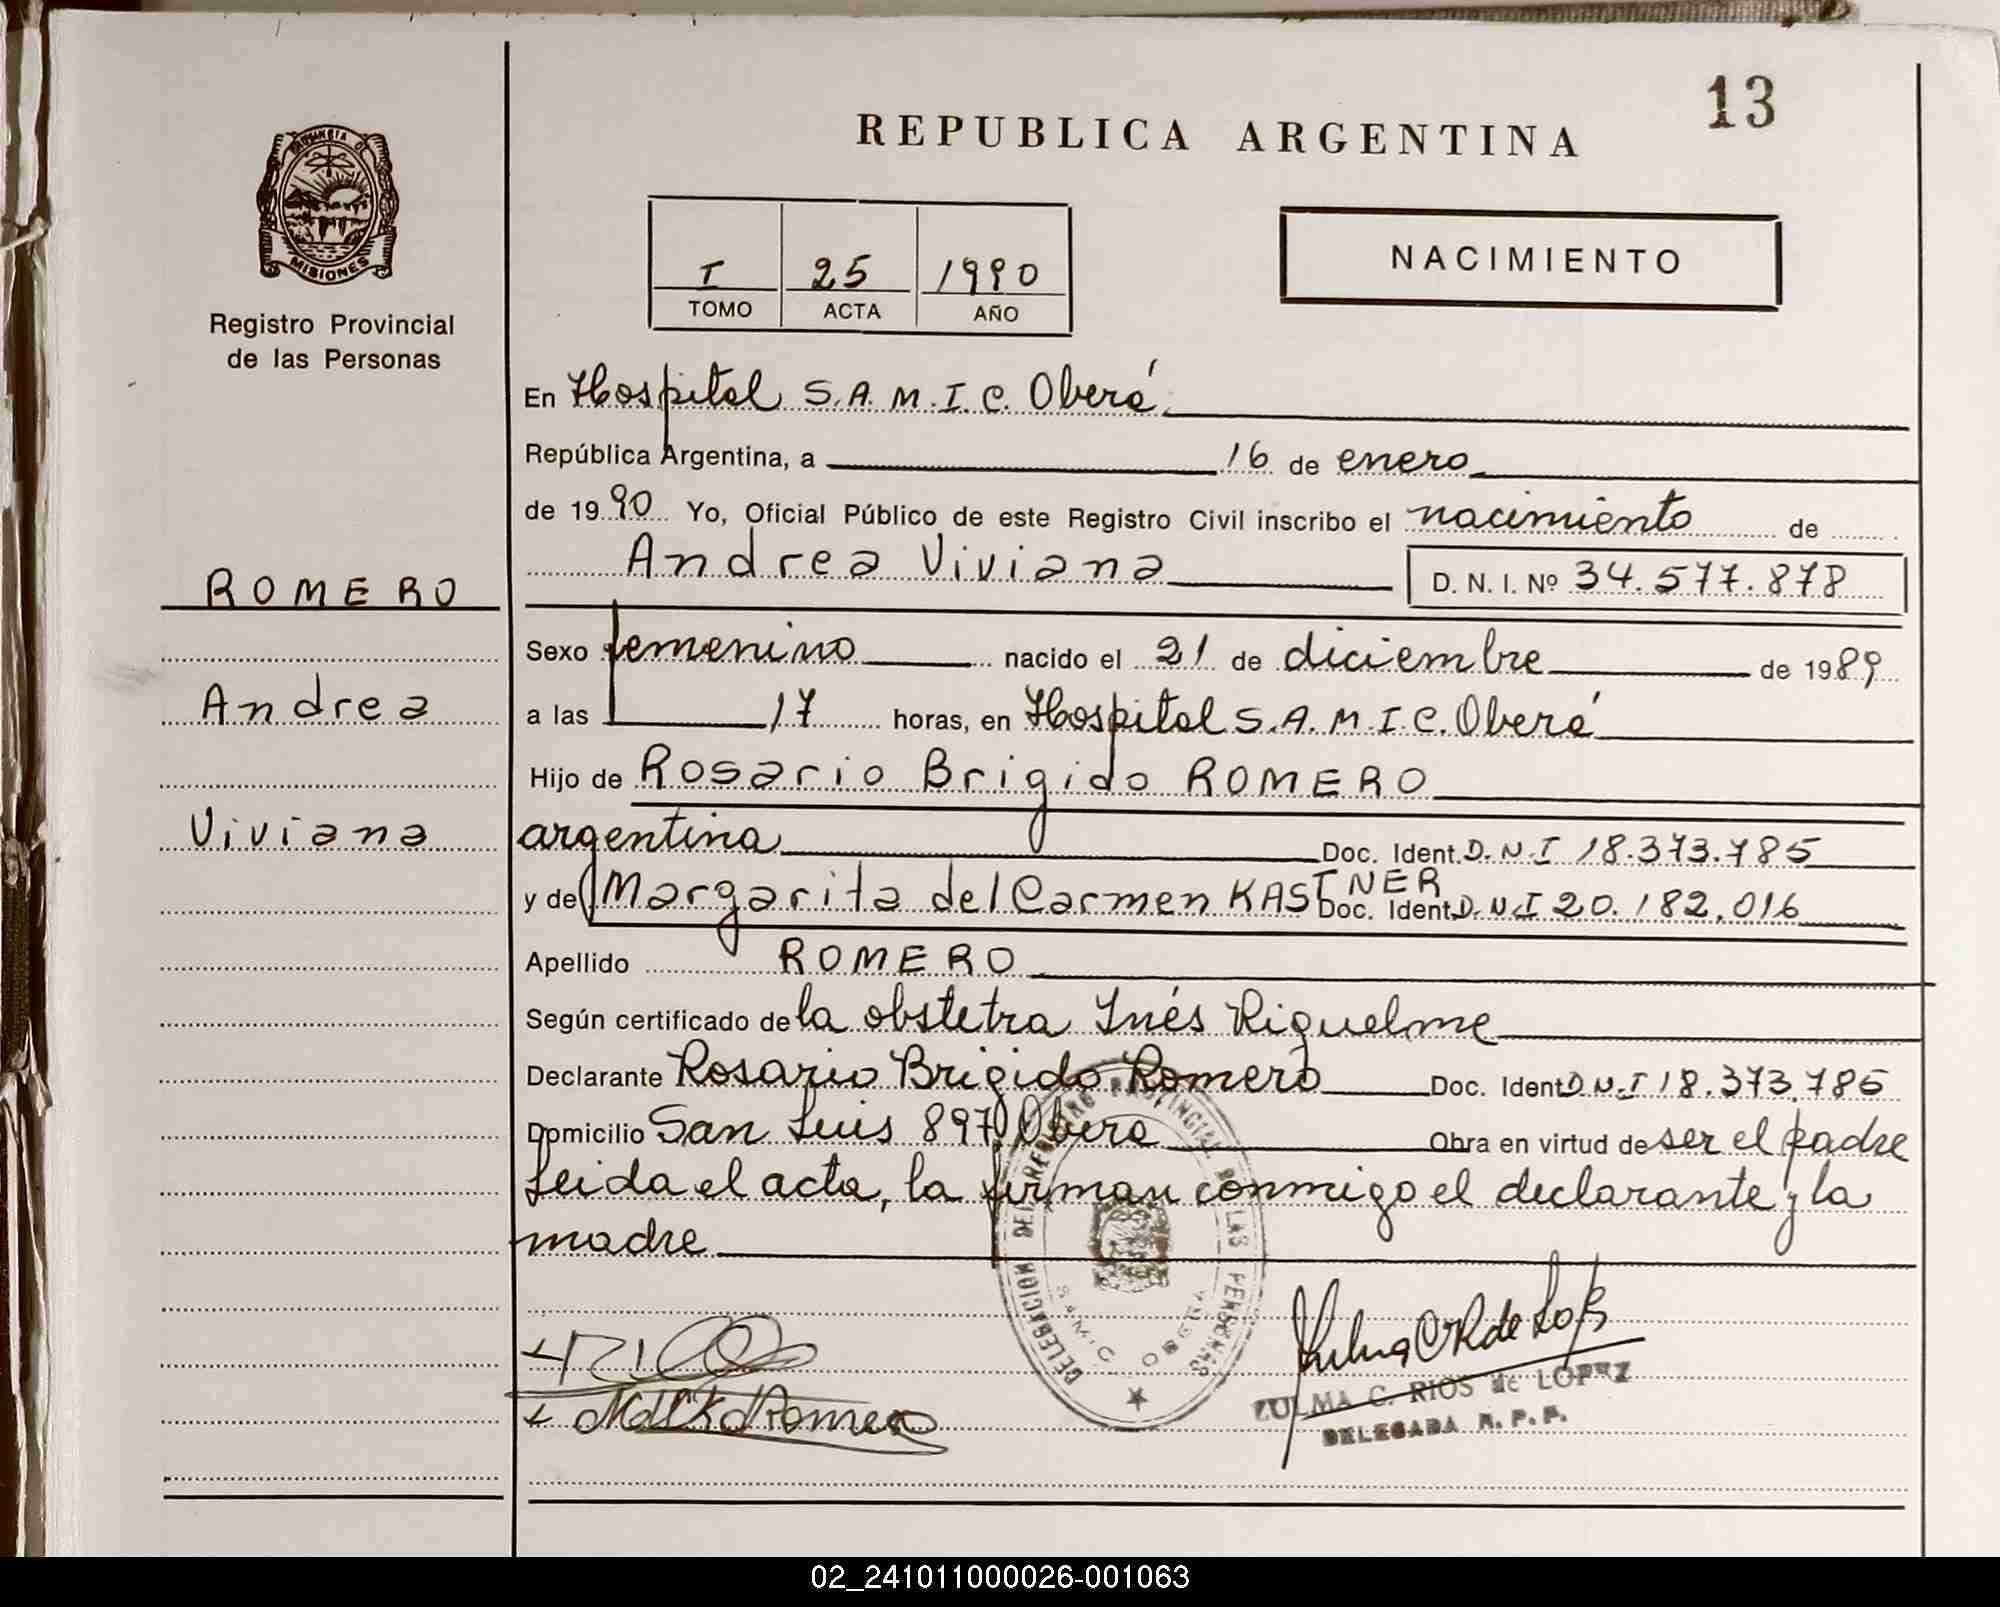 13
REPUBLICA ARGENTINA
PROVINCIA DE
MISIONES
Registro Provincial
de las Personas
I 25 1990
TOMO ACTA AÑO
NACIMIENTO
En Hospital S.A.M.I.C. Oberá
República Argentina, a 16 de enero
de 1990 Yo, Oficial Público de este Registro Civil inscribo el nacimiento de
Andrea Viviana D. N. I. Nº 34.577.878
ROMERO
Andrea
Viviana
Sexo femenino nacido el 21 de diciembre de 1989
a las 17 horas, en Hospital S.A.M.I.C. Oberá
Hijo de Rosario Brigido ROMERO
argentina Doc. Ident. D.N.I 18.373.785
y de Margarita del Carmen KASTNER Doc. Ident. D.N.I 20.182.016
Apellido ROMERO
Según certificado de la obstetra Inés Riquelme
Declarante Rosario Brigido Romero Doc. Ident D.N.I 18.373.785
Domicilio San Luis 897 Obera Obra en virtud de ser el padre
Leida el acta, la firman conmigo el declarante y la
madre
DELEGACION DEL REGISTRO PROVINCIAL DE LAS PERSONAS
SAMIC OBERA
ZULMA C. RIOS de LOPEZ
DELEGADA R. P. P.
02_241011000026-001063